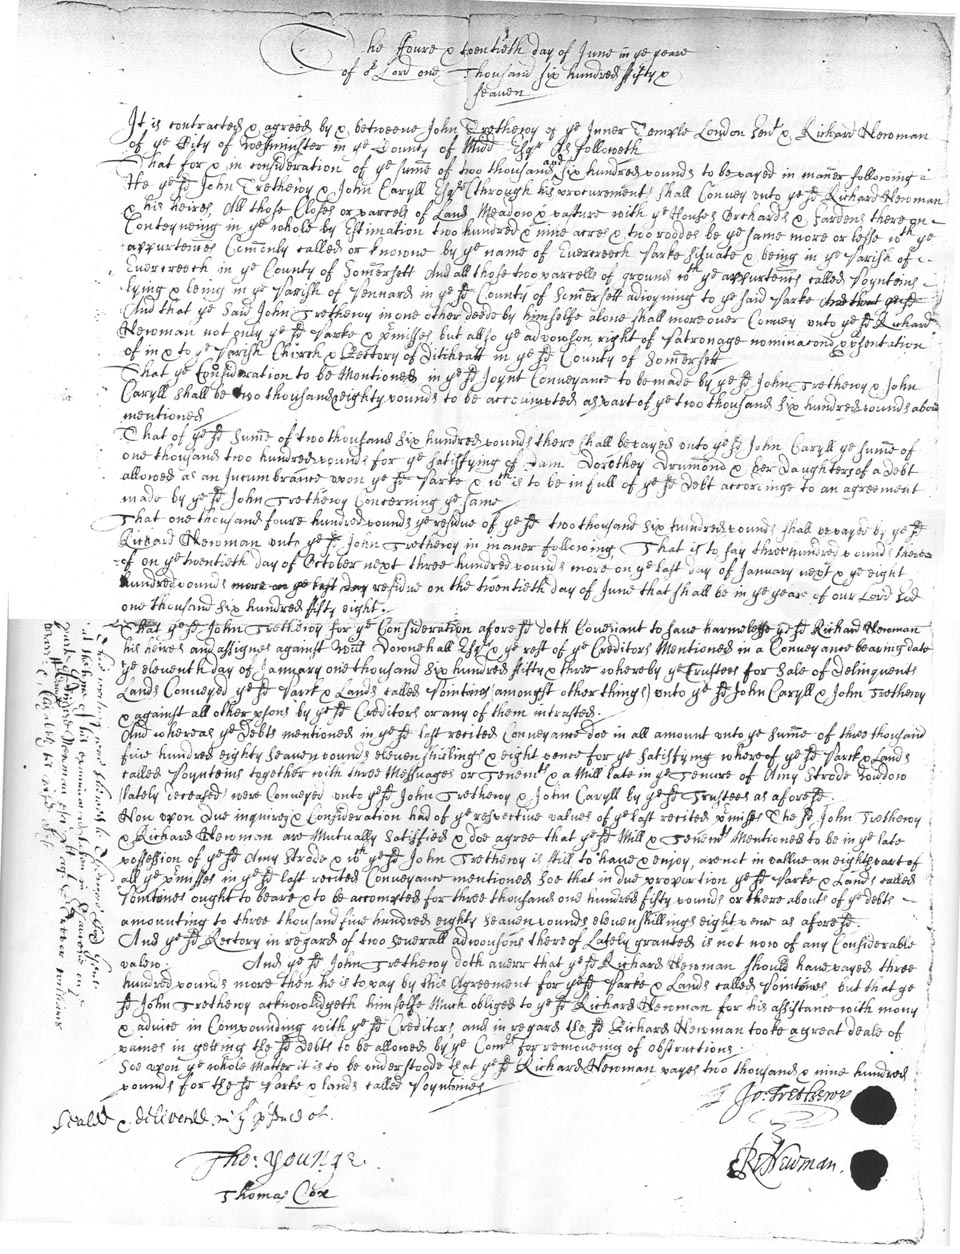 The foure & twentieth day of June in ye yeare
of or Lord one Thousand six hundred fifty &
seaven
It is contracted & agreed by & betweene John Trethewy of ye Inner Temple London Gent & Richard Newman
of ye City of Westminster in ye County of Midd Esqr As followeth
That for & in consideration of ye summe of two thousand and six hundred pounds to be payed in maner following
He ye sd John Trethewy & John Caryll Esqr (through his procurement) shall Convey unto ye sd Richard Newman
& his heires, All those Closes or parcels of Land Meadow & pasture with ye Houses Orchards & Gardens there on
Conteyneing in ye whole by Estimation two hundred & nine acres & two roodes be ye same more or lesse wth ye
appurtences Commonly called or knowne by ye name of Evercreech Parke situate & being in ye Parish of
Evercreech in ye County of Sommersett And all those two parcells of ground wth ye appurtences called Poyntens
lying & being in ye Parish of Pennard in ye sd County of Sommersett adioyning to ye said Parke
And that ye said John Trethewy in one other deede by himselfe alone shall more over Convey unto ye sd Richard
Newman not only ye sd Parke & pmisses but also ye advowson right of Patronage nominacon & psentation
of in & to ye Parish Church & Rectory of Ditcheatt in ye sd County of Sommersett
That ye consideration to be Mentioned in ye sd Joynt Conveyance to be made by ye sd John Trethewy & John
Caryll shall be two thousand eighty pounds to be accompted as part of ye two thousand six hundred pounds above
mentioned
That of ye sd summe of two thousand six hundred pounds there shall be payed unto ye sd John Caryll ye summe of
one thousand two hundred pounds for ye satisfying of Dam Dorothey Drumond & her Daughters of a debt
allowed as an Incumbrance upon ye sd Parke & wth is to be in full of ye sd debt accordinge to an agreement
made by ye sd John Trethewy Concerning ye same
That one thousand foure hundred pounds ye residue of ye sd two thousand six hundred pounds shall be payed by ye sd
Richard Newman unto ye sd John Trethewy in maner following, That is to say three hundred pounds there
of on ye twentieth day of October next three hundred pounds more on ye last day of January next & ye eight
hundred pounds more on ye last day residue on the twentieth day of June that shall be in ye yeare of our Lord God
one thousand six hundred fifty eight.
That ye sd John Trethewy for ye Consideration aforesd doth Covenant to save harmelesse ye sd Richard Newman
his heires and assignes against Will Downehall Esqr & ye rest of ye Creditors Mentioned in a Conveyance bearing date
ye eleventh day of January one thousand six hundred fifty & three whereby ye Trustees for Sale of Delinquents
Lands Conveyed ye sd Parke & Lands called Pointines (amongst other things) unto ye sd John Caryll & John Trethewy
& against all other psons by ye sd Creditors or any of them intrusted.
And whereas ye Debts mentioned in ye sd last recited Conveyance doe in all amount unto ye summe of three thousand
five hundred eighty seaven pounds eleven shillings & eight pence for ye satisfying whereof ye sd Parke & Lands
called Poyntens together with three Messuages or Tenemts & a Mill late in ye tenure of Amy Strode widdow
(lately deceased) were Conveyed unto ye sd John Trethewy & John Caryll by ye sd Trustees as aforesd.
Now upon due inquiry & Consideration had of ye respective values of ye last recited pmisses The sd John Trethewy
& Richard Newman are Mutually satisfied & doe agree that ye sd Mill & Tenemts Mentioned to be in ye late
possession of ye sd Amy Strode & wth ye sd John Trethewy is still to have & enjoy, are not in vallue an eight part of
all ye pmisses in ye sd last recited Conveyance mentioned Soe that in due proportion ye sd Parke & Lands called
Pointines ought to beare & to be accompted for three thousand one hundred fifty pounds or there about of ye debts
amounting to three thousand five hundred eighty seaven pounds eleven shillings eight pence as aforesd.
And ye sd Rectory in regard of two severall advowsons there of Lately granted is not now of any Considerable
valew. And ye sd John Trethewy doth averr that ye sd Richard Newman should have payed three
hundred pounds more then he is to pay by this Agreement for ye sd Parke & Lands called Pointines but that ye
sd John Trethewy acknowledgeth himselfe Much obliged to ye sd Richard Newman for his assistance with mony
& advice in Compounding with ye sd Creditors, and in regard the sd Richard Newman tooke a great deale of
paines in getting the sd Debts to be allowed by ye Comrs for removeing of obstructions.
Soe upon ye whole Matter it is to be understoode that ye sd Richard Newman payes two thousand & nine hundred
pounds for the sd Parke & lands called Poyntines
Jo: Trethewy
Seald & delivered in ye psence of.
Tho: Younge.
R: Newman.
Thomas Cox